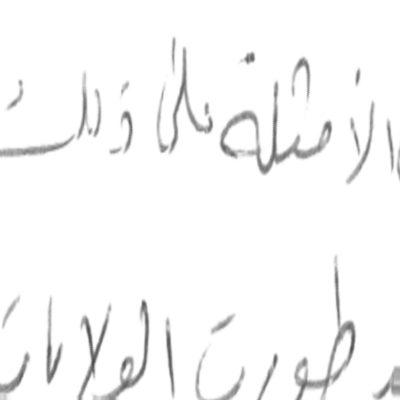 الأمثلة على ذلك
طورت الولايات